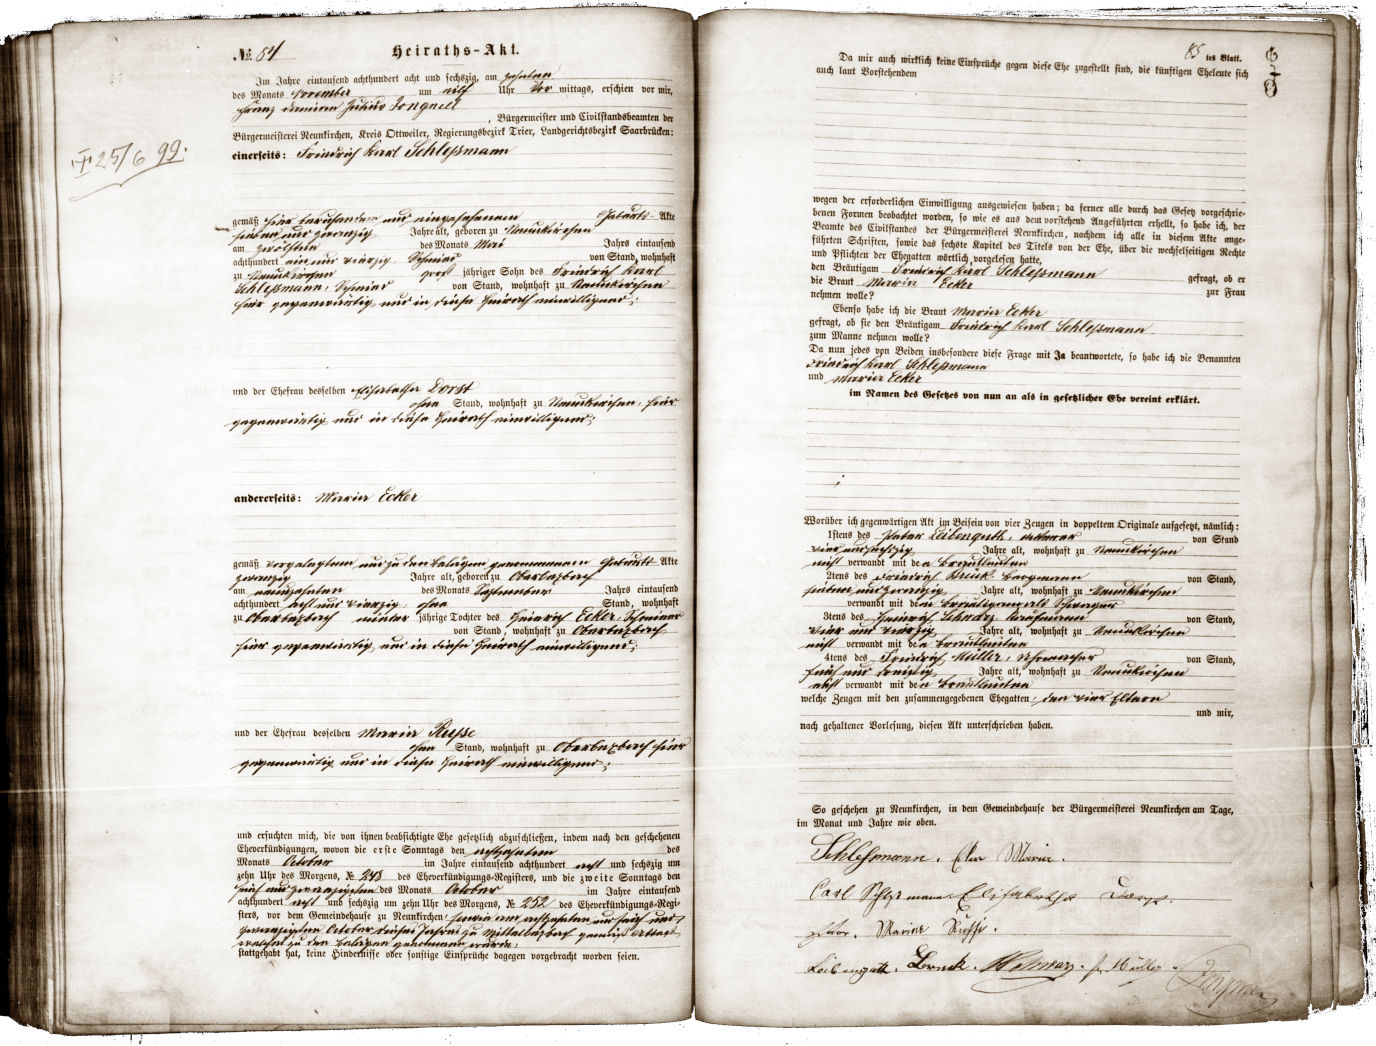 № 84
Heiraths-Akt.
Im Jahre eintausend achthundert acht und sechszig, am zehnten
des Monats November um eilf Uhr Vor mittags, erschien vor mir,
Franz Damian Julius Jongnell
, Bürgermeister und Civilstandsbeamten der
Bürgermeisterei Neunkirchen, Kreis Ottweiler, Regierungsbezirk Trier, Landgerichtsbezirk Saarbrücken:
einerseits: Friedrich Karl Schleßmann
25/6 99.
gemäß hier beruhendem und eingesehenem Geburts-Akte
sieben und zwanzig Jahre alt, geboren zu Neunkirchen
am zwölften des Monats Mai Jahrs eintausend
achthundert ein und vierzig, Schmied von Stand, wohnhaft
zu Neunkirchen groß jähriger Sohn des Friedrich Karl
Schleßmann, Schmied von Stand, wohnhaft zu Neunkirchen
hier gegenwärtig und in diese Heirath einwilligend;
und der Ehefrau desselben Elisabetha Dorst
ohne Stand, wohnhaft zu Neunkirchen, hier
gegenwärtig und in diese Heirath einwilligend;
andererseits: Maria Ecker
gemäß vorgelegtem und zu den Belägen genommenem Geburts-Akte
zwanzig Jahre alt, geboren zu Oberbexbach
am neunzehnten des Monats September Jahrs eintausend
achthundert acht und vierzig, ohne Stand, wohnhaft
zu Oberbexbach minder jährige Tochter des Heinrich Ecker, Schreiner
von Stand, wohnhaft zu Oberbexbach
hier gegenwärtig und in diese Heirath einwilligend;
und der Ehefrau desselben Maria Ruffse
ohne Stand, wohnhaft zu Oberbexbach hier
gegenwärtig und in diese Heirath einwilligend;
und ersuchten mich, die von ihnen beabsichtigte Ehe gesetzlich abzuschließen, indem nach den geschehenen
Eheverkündigungen, wovon die erste Sonntags den achtzehnten des
Monats October im Jahre eintausend achthundert acht und sechszig um
zehn Uhr des Morgens, № 243 des Eheverkündigungs-Registers, und die zweite Sonntags den
fünf und zwanzigsten des Monats October im Jahre eintausend
achthundert acht und sechszig um zehn Uhr des Morgens, № 252 des Eheverkündigungs-Regi-
sters, vor dem Gemeindehause zu Neunkirchen, sowie am achtzehnten und fünf und
zwanzigsten October dieses Jahres zu Mittelbexbach gemäß Attest
welches zu den Belägen genommen wurde,
stattgehabt hat, keine Hindernisse oder sonstige Einsprüche dagegen vorgebracht worden seien.
85 tes Blatt.
Da mir auch wirklich keine Einsprüche gegen diese Ehe zugestellt sind, die künftigen Eheleute sich
auch laut Vorstehendem
wegen der erforderlichen Einwilligung ausgewiesen haben; da ferner alle durch das Gesetz vorgeschrie-
benen Formen beobachtet worden, so wie es aus dem vorstehend Angeführten erhellt, so habe ich, der
Beamte des Civilstandes der Bürgermeisterei Neunkirchen, nachdem ich alle in diesem Akte ange-
führten Schriften, sowie das sechste Kapitel des Titels von der Ehe, über die wechselseitigen Rechte
und Pflichten der Ehegatten wörtlich vorgelesen hatte,
den Bräutigam Friedrich Karl Schleßmann gefragt, ob er
die Braut Maria Ecker zur Frau
nehmen wolle?
Ebenso habe ich die Braut Maria Ecker
gefragt, ob sie den Bräutigam Friedrich Karl Schleßmann
zum Manne nehmen wolle?
Da nun jedes von Beiden insbesondere diese Frage mit Ja beantwortete, so habe ich die Benannten
Friedrich Karl Schleßmann
und Maria Ecker
im Namen des Gesetzes von nun an als in gesetzlicher Ehe vereint erklärt.
Worüber ich gegenwärtigen Akt im Beisein von vier Zeugen in doppeltem Originale aufgesetzt, nämlich:
1stens des Peter Leibenguth, von Stand
vier und sechszig Jahre alt, wohnhaft zu Neunkirchen
nicht verwandt mit den Brautleuten
2tens des Friedrich Bergmann von Stand,
sieben und zwanzig Jahre alt, wohnhaft zu Neunkirchen
verwandt mit dem Bräutigam als Schwager
3tens des Heinrich von Stand,
vier und vierzig Jahre alt, wohnhaft zu Neunkirchen
nicht verwandt mit den Brautleuten
4tens des Friedrich Müller, von Stand,
fünf und dreißig Jahre alt, wohnhaft zu Neunkirchen
nicht verwandt mit den Brautleuten
welche Zeugen mit den zusammengegebenen Ehegatten, den vier Eltern
und mir,
nach gehaltener Vorlesung, diesen Akt unterschrieben haben.
So geschehen zu Neunkirchen, in dem Gemeindehause der Bürgermeisterei Neunkirchen am Tage,
im Monat und Jahre wie oben.
Schleßmann. Maria.
Carl Elisabetha
Maria
Leibenguth. Müller